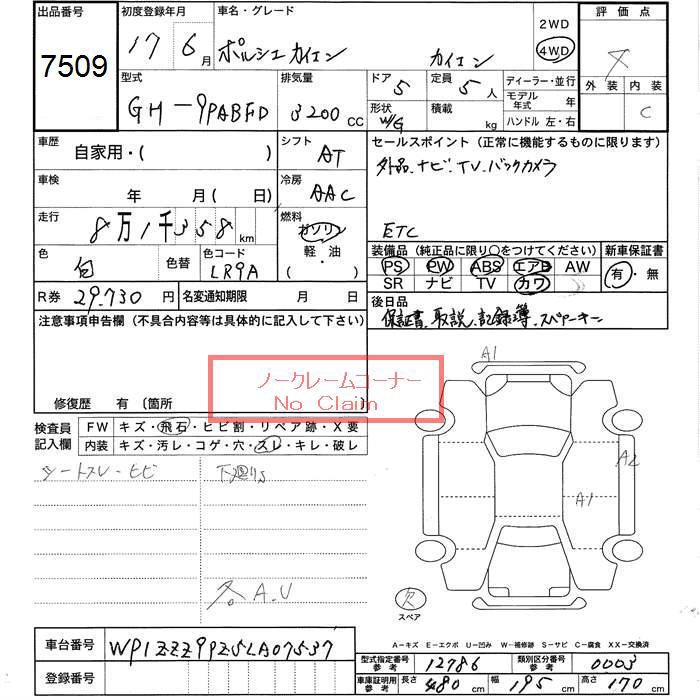 出品番号 初度登録年月 車名・グレード 2WD 評価点
7509 17 6月 ポルシェカイエン カイエン 4WD
外装 内装
C
型式 排気量 ドア 5 定員 5人 ディーラー・並行
GH-9PABFD 3200CC 形状 W/G 積載 kg モデル年式 年
ハンドル 左・右
車歴 自家用・( ) シフト AT セールスポイント（正常に機能するものに限ります）
外品.ナビ.TV.バックカメラ
車検 年 月(日) 冷房 AAC
走行 8万1千358km 燃料 ガソリン 軽・油 ( )
ETC
色 白 色替 色コード LR9A 装備品（純正品に限り○をつけてください） 新車保証書
PS PW ABS エアB AW 有・無
SR ナビ TV カワ
R券 29.730円 名変通知期限 月 日 後日品
保証書.取説.記録簿.スペアーキー
注意事項申告欄（不具合内容等は具体的に記入して下さい）
ノークレームコーナー
No Claim
修復歴 有（箇所 ）
A1
検査員記入欄 FW キズ・飛石・ヒビ割・リペア跡・X要
内装 キズ・汚レ・コゲ・穴・スレ・キレ・破レ
シートスレ・ヒビ 下廻りS
A2
A1
A.U
欠
スペア
A-キズ E-エクボ U-凹み W-補修跡 S-サビ C-腐食 XX-交換済
車台番号 WP1ZZZ9PZ5LA07537
型式指定番号参考 12786 類別区分番号参考 0003
登録番号 車庫証明用参考 長さ 480cm 幅 195cm 高さ 170cm